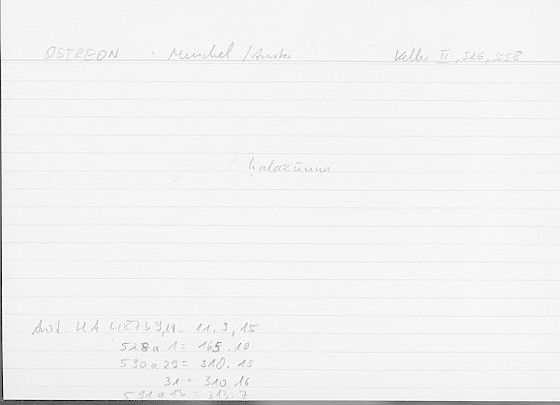 OSTREON . Muschel / Auster Keller II, 526, 558
ḫalazūnun
Arist. HA 487 b 9, 11 = 11.9, 15
528 a 1 = 165.10
590 a 29 = 310.15
31 = 310.16
591 a 1 = 313.7